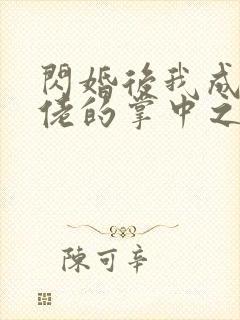 閃婚後我成
佬的掌中之
陳可辛